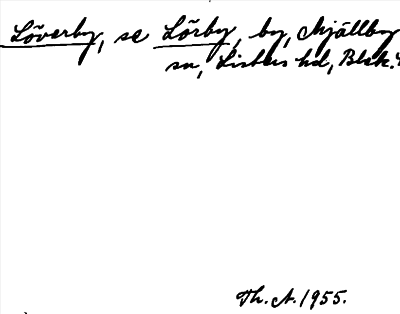 Löverby, se Lörby, by, Mjällby
sn, Listers hd, Blek.
Th. A. 1955.